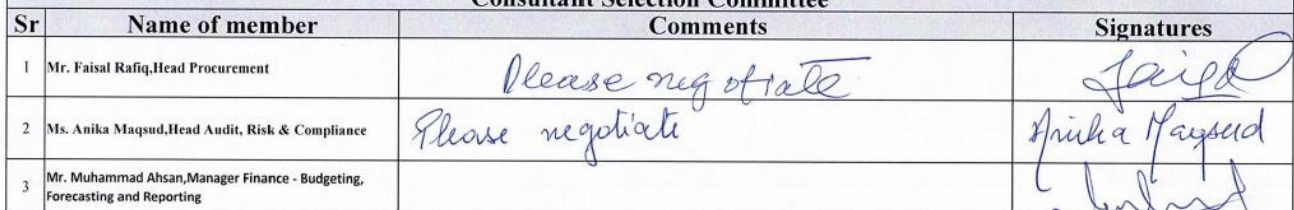 Consultant Selection Committee
Sr Name of member Comments Signatures
1 Mr. Faisal Rafiq,Head Procurement Please negotiate Faisal
2 Ms. Anika Maqsud,Head Audit, Risk & Compliance Please negotiate Anika Maqsud
3 Mr. Muhammad Ahsan,Manager Finance - Budgeting,
Forecasting and Reporting